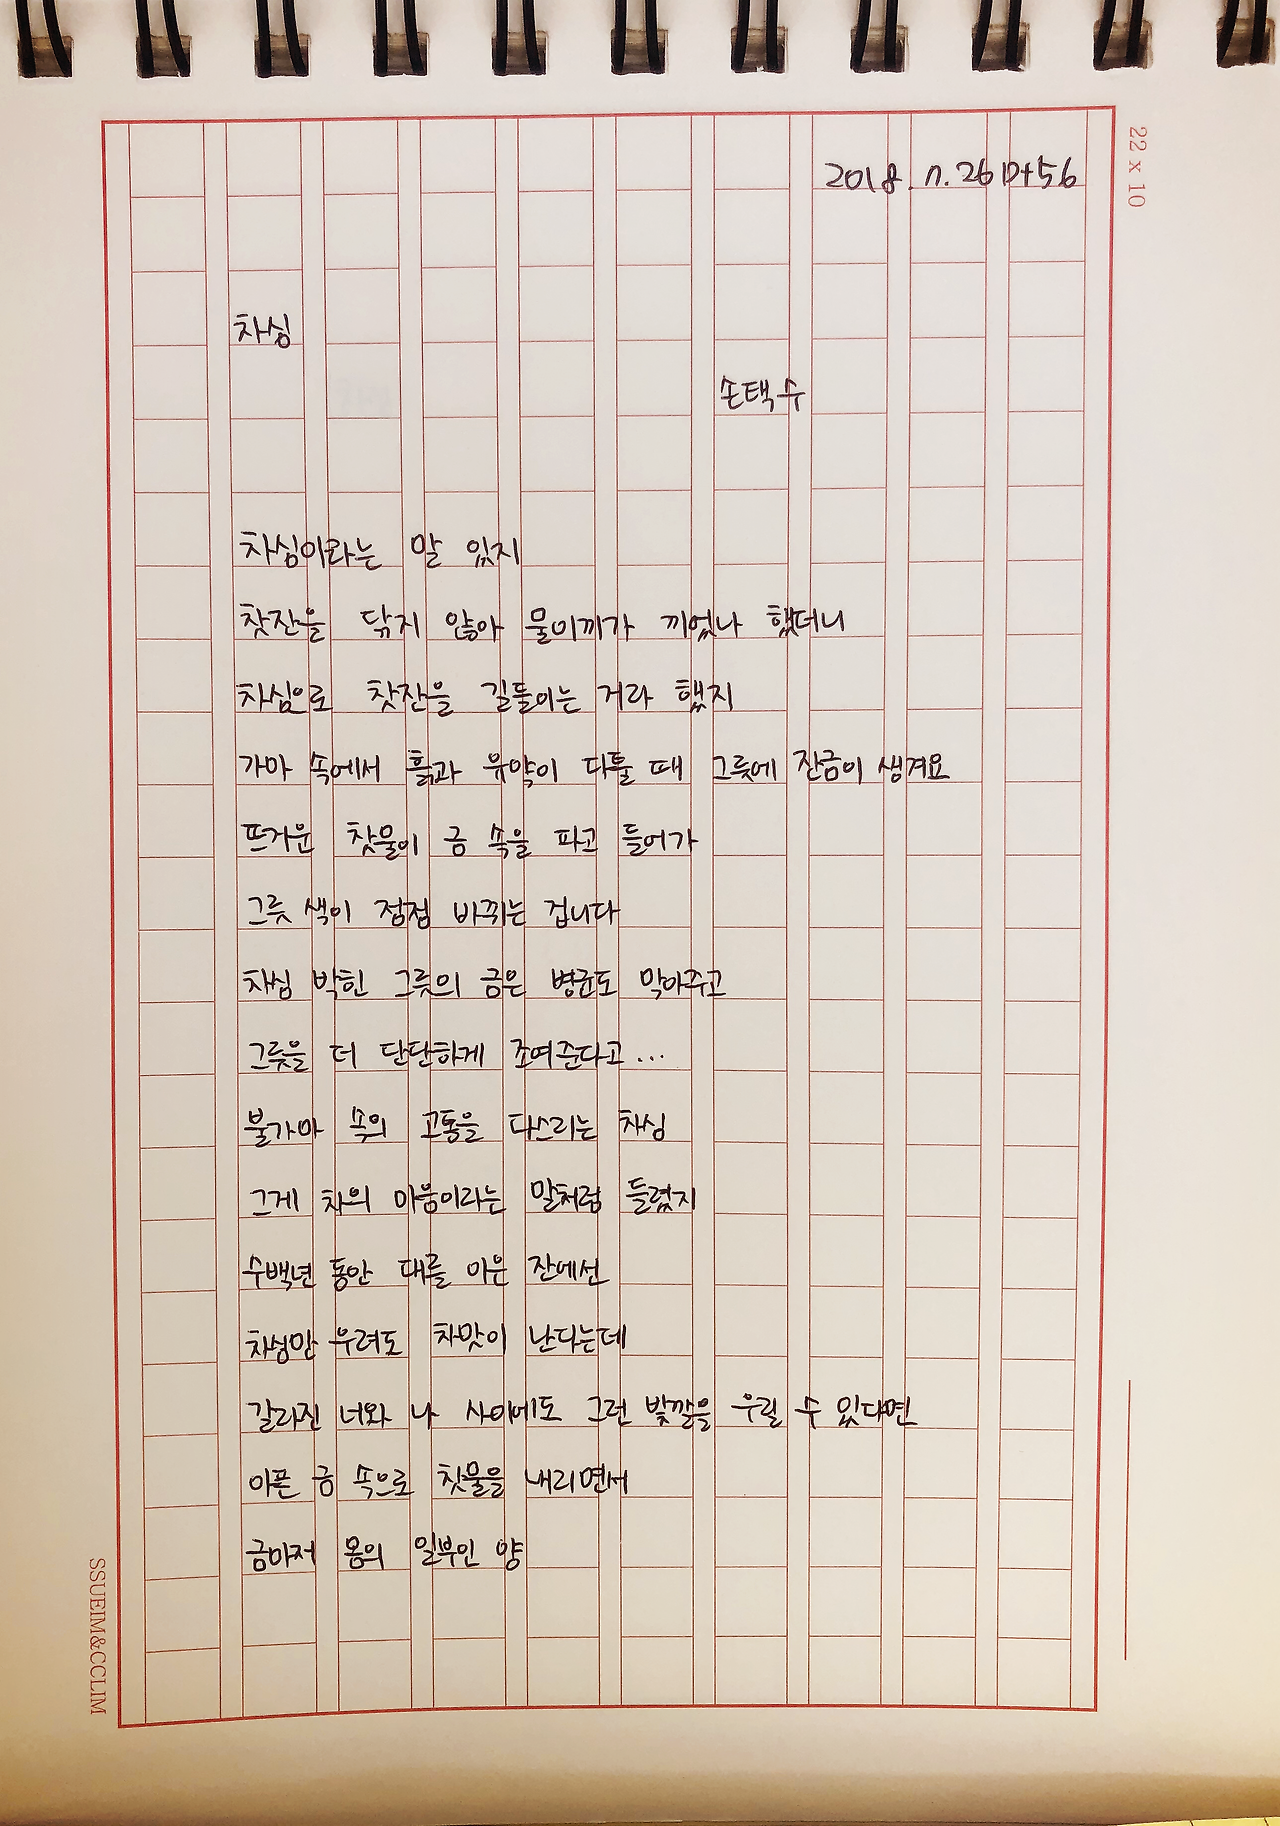 2018. 7. 26 D+56
22 x 10
차심
손택수
차심이라는 말 있지
찻잔을 닦지 않아 물이끼가 끼었나 했더니
차심으로 찻잔을 길들이는 거라 했지
가마 속에서 흙과 유약이 다툴 때 그릇에 잔금이 생겨요
뜨거운 찻물이 금 속을 파고 들어가
그릇 색이 점점 바뀌는 겁니다
차심 박힌 그릇의 금은 병균도 막아주고
그릇을 더 단단하게 조여준다고...
불가마 속의 고통을 다스리는 차심
그게 차의 마음이라는 말처럼 들렸지
수백년 동안 대를 이은 잔에선
차심만 우려도 차맛이 난다는데
갈라진 너와 나 사이에도 그런 빛깔을 우릴 수 있다면
아픈 금 속으로 찻물을 내리면서
금마저 몸의 일부인 양
SSUEIM&CCLIM